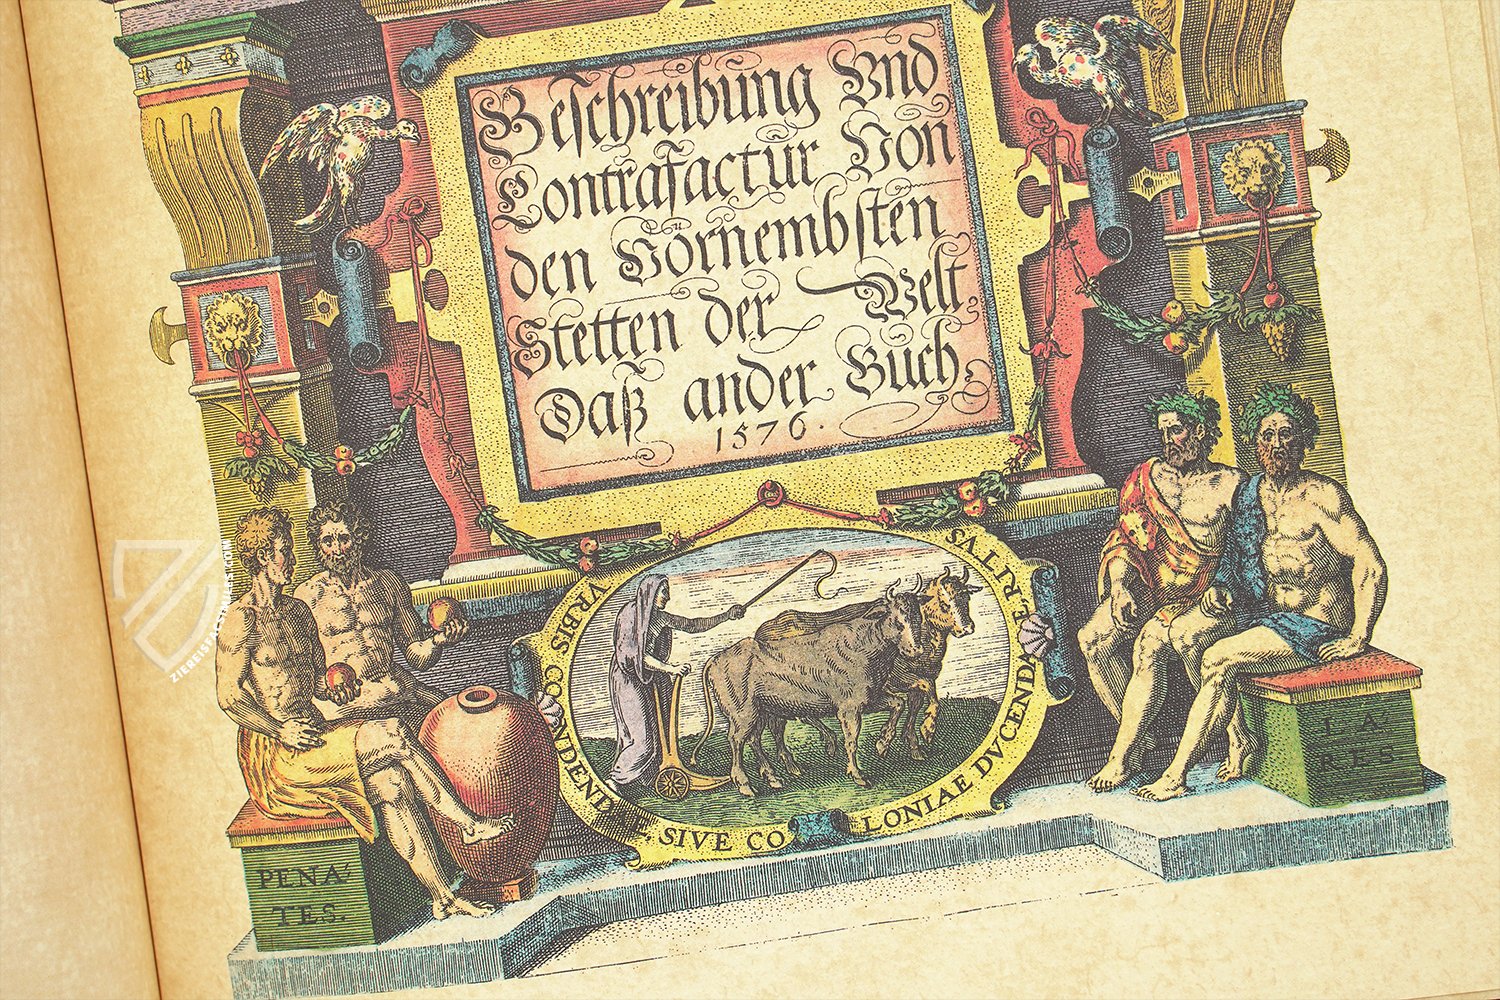 Beschreibung Vnd
Contrafactur Von
den Vornembsten
Stetten der Welt
Daß ander Buch
1576.
VRBIS CONDENDAE SIVE COLONIAE DVCENDAE RITVS
PENA
TES.
LA
RES
ZIEREISFACSIMILES.COM